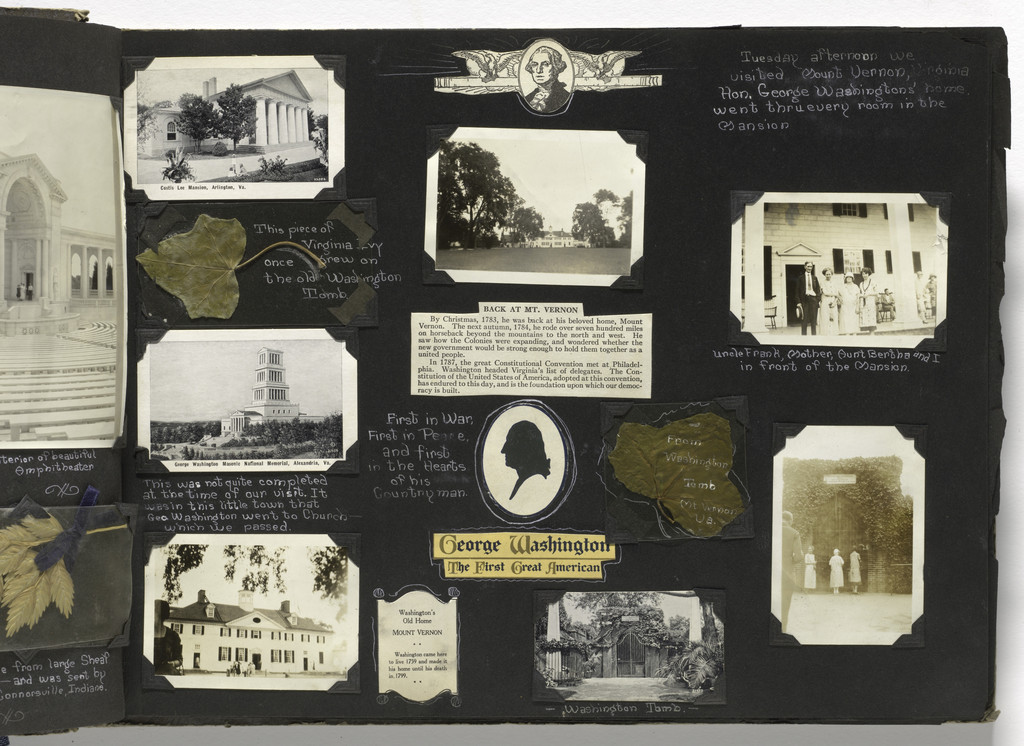 terior of beautiful
Amphitheater
e from large Sheaf
— and was sent by
Connorsville, Indiana.
Custis Lee Mansion, Arlington, Va.
This piece of
Virginia Ivy
once grew on
the old Washington
Tomb
George Washington Masonic National Memorial, Alexandria, Va.
This was not quite completed
at the time of our visit. It
was in this little town that
Geo Washington went to Church —
which we passed.
BACK AT MT. VERNON
By Christmas, 1783, he was back at his beloved home, Mount
Vernon. The next autumn, 1784, he rode over seven hundred miles
on horseback beyond the mountains to the north and west. He
saw how the Colonies were expanding, and wondered whether the
new government would be strong enough to hold them together as a
united people.
In 1787, the great Constitutional Convention met at Philadel-
phia. Washington headed Virginia's list of delegates. The Con-
stitution of the United States of America, adopted at this convention,
has endured to this day, and is the foundation upon which our democ-
racy is built.
First in War,
First in Peace,
and first
in the Hearts
of his
Countryman.
From
Washington
Tomb
Mt Vernon
Va.
George Washington
The First Great American
Washington's
Old Home
MOUNT VERNON
Washington came here
to live 1759 and made it
his home until his death
in 1799.
— Washington Tomb. —
Tuesday afternoon we
visited Mount Vernon, Virginia
Hon. George Washingtons' home
went thru every room in the
Mansion
Uncle Frank, Mother, Aunt Bertha and I
in front of the Mansion.